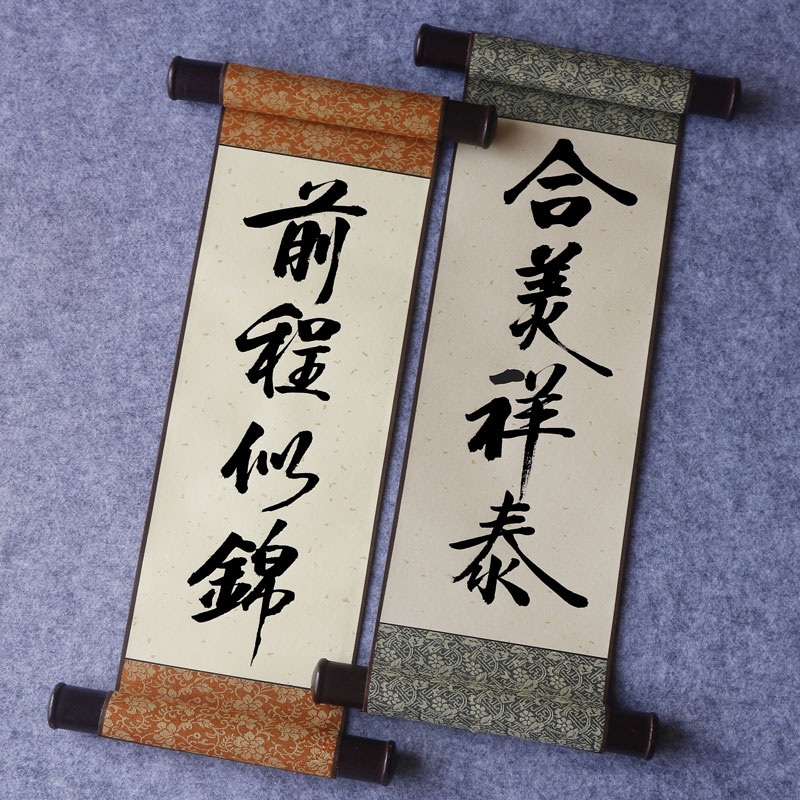 前程似錦
合美祥泰